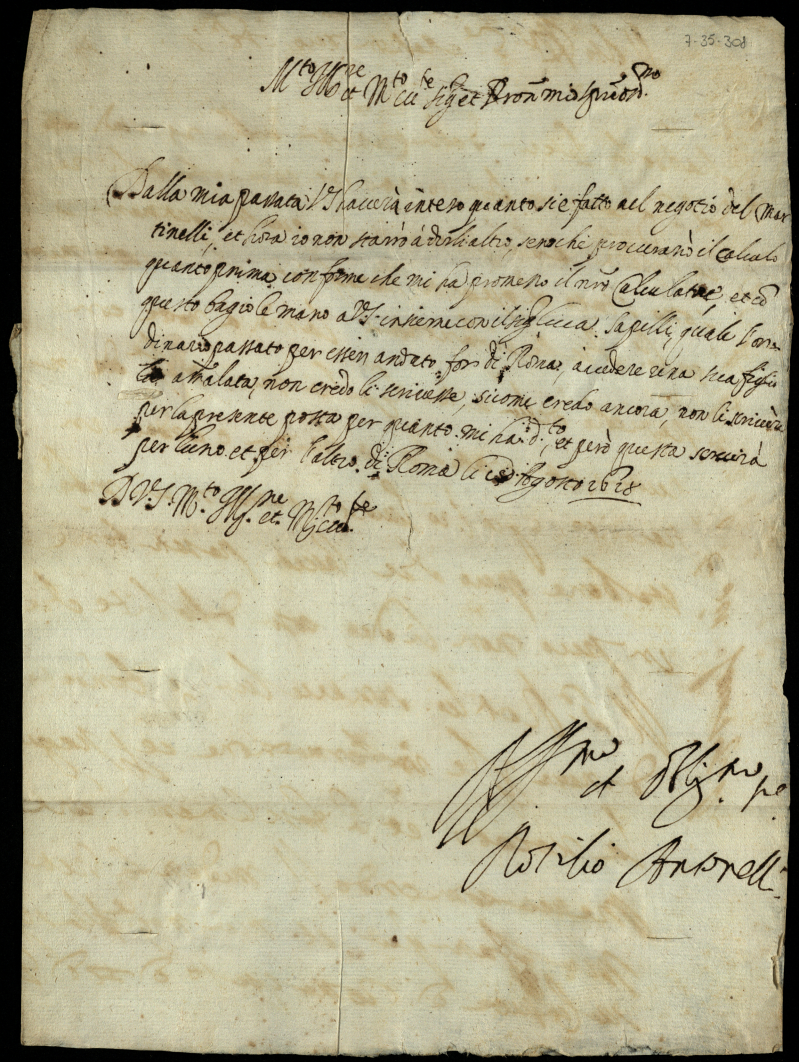 7-35-308
M.to Ill.re et M.to ecc.te Sig.r et Pron mio
Dalla mia passata V.S. haverà inteso quanto si è fatto nel negotio del Mar
tinelli, et hora io non starrò à dirli altro, se no che procurarò il calculo
quanto prima conforme che mi ha promesso il nro Calculatore, et cō
questo bagio le mano a V.S. insieme con il Sig.
dinario passato per esser andato for di Roma, a vedere una sua figlio
la amalata, non credo li scrivesse, si come credo ancora, non li scriverà
per la presente posta per quanto mi ha d.to, et però questa servirà
per l'uno et per l'altro. di Roma li Agosto 1628
D V.S. M.to Ill.re et M.to ecc.te
Aff.mo et Obblig.mo
Rutilio Antonelli